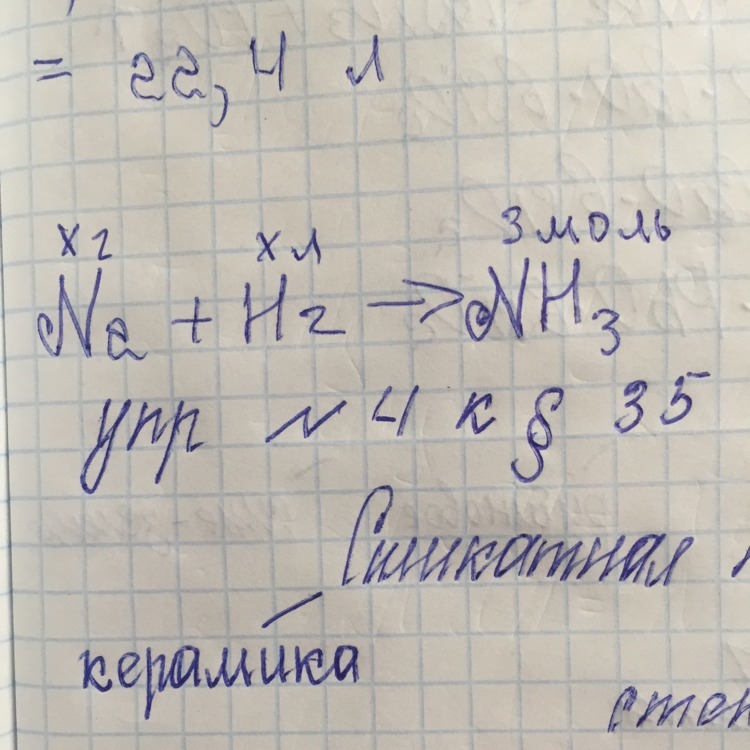 = 22,4 л
х г х л 3 моль
N2 + H2 → NH3
упр N 4 к § 35
Силикатная
керамика